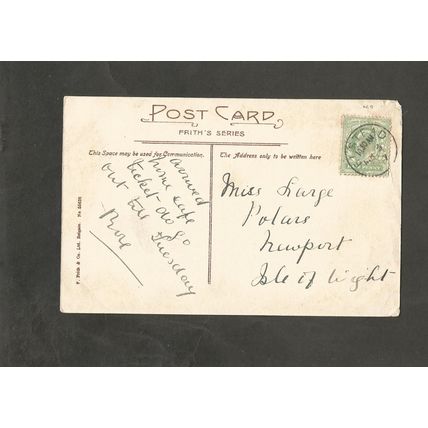 POST CARD
FRITH'S SERIES
This Space may be used for Communication.
The Address only to be written here
arrived
home safe
ticket do go
out till Tuesday
Miss Large
Newport
Isle of Wight
F. Frith & Co. Ltd. Reigate.